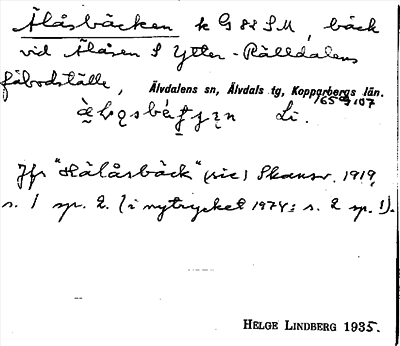 Ålåsbäcken k G 82 S M, bäck
vid Ålåsen S Ytter-Rälldalens
fäbodställe, Älvdalens sn, Älvdals tg, Kopparbergs län.
Li.
Jfr "Hålåsbäck" (sic) Skansv. 1919,
s. 1 sp. 2. (i nytrycket 1974: s. 2 sp. 1).
HELGE LINDBERG 1935.